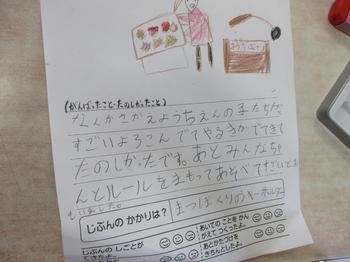 (がんばったこと・たのしかったこと)
すごいよろこんでてやるきがでてきて
たのしかったです。あとみんなち
んとルールをまもってあそべてすごいとお
もいました。
じぶんの かかりは?
まつぼっくりのキーホルダー
じぶんの しごとが
できた。
あいての ことを かん
がえて つくった。
あとかたづけを
きちんとした。